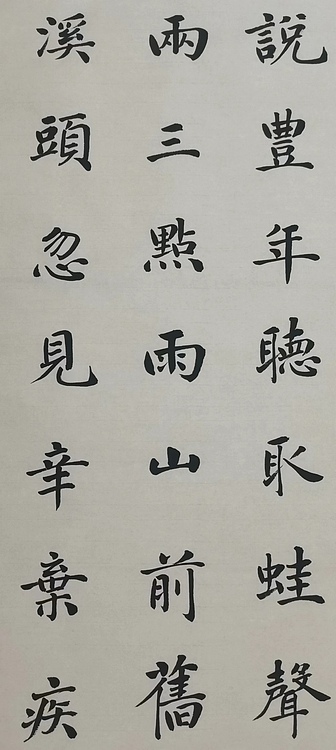 說豐年聽取蛙聲
兩三點雨山前舊
溪頭忽見辛棄疾